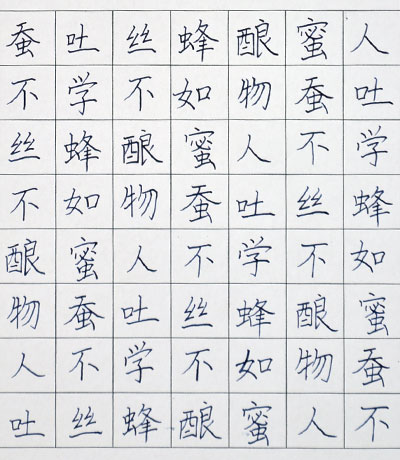 蚕吐丝蜂酿蜜人
不学不如物蚕吐
丝蜂酿蜜人不学
不如物蚕吐丝蜂
酿蜜人不学不如
物蚕吐丝蜂酿蜜
人不学不如物蚕
吐丝蜂酿蜜人不